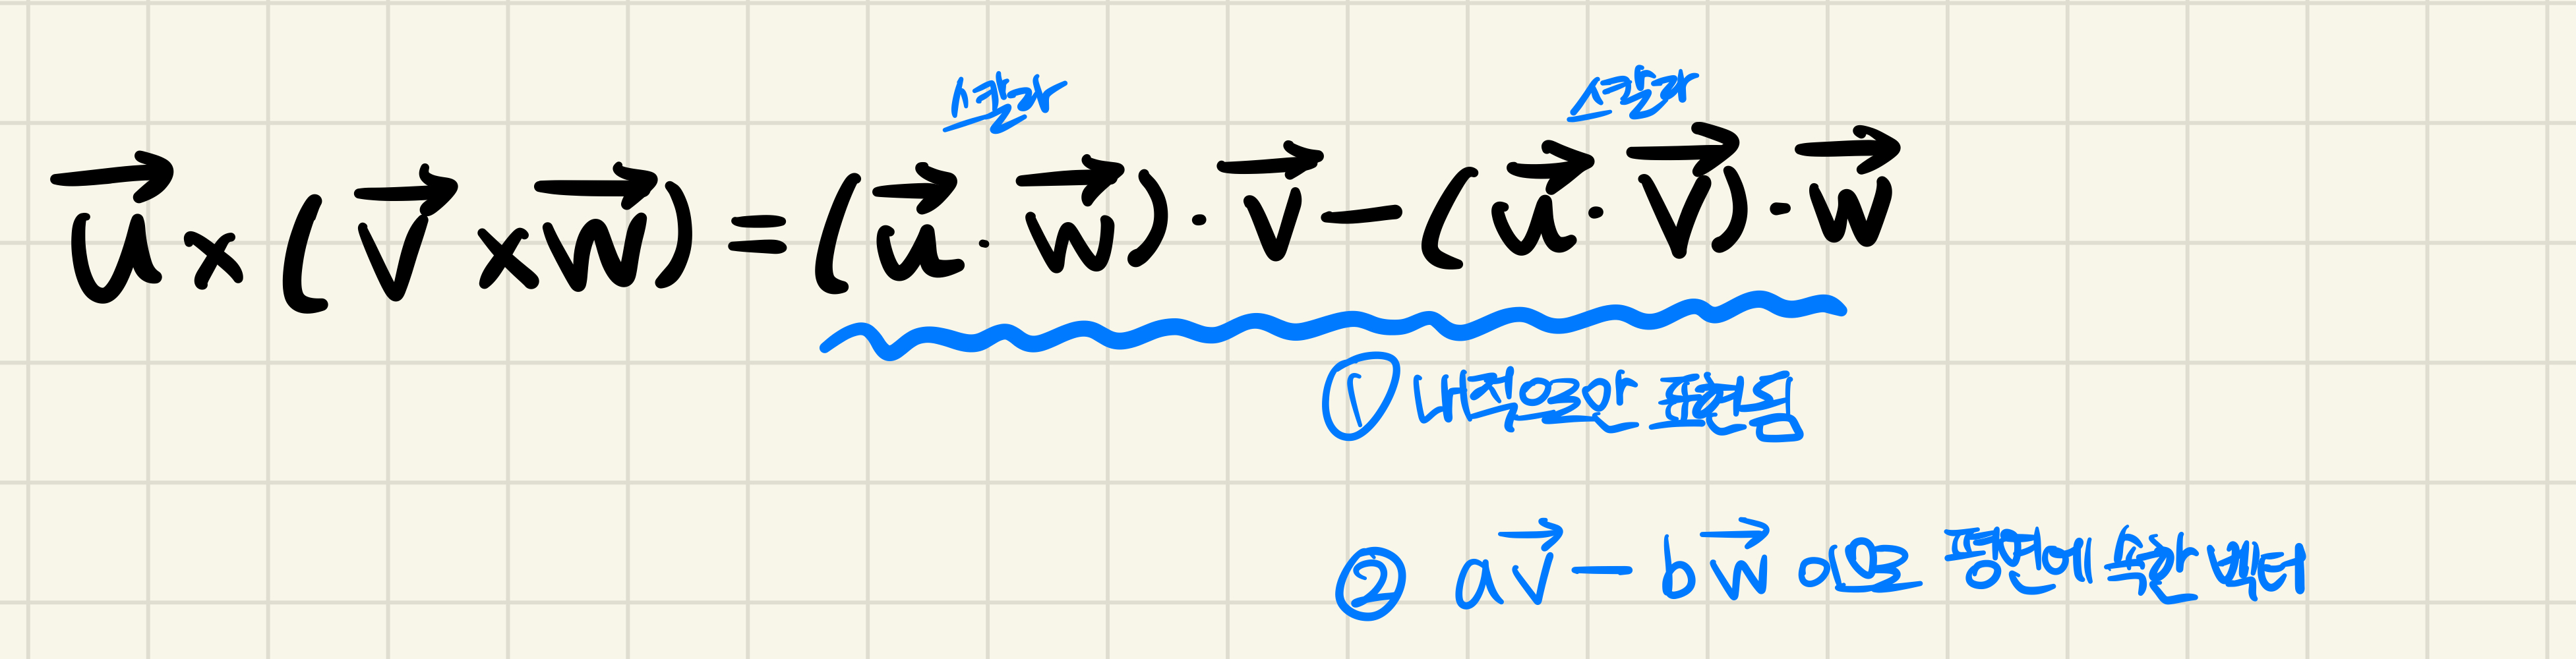 스칼라 스칼라
u⃗ × (v⃗ × w⃗) = (u⃗ · w⃗) · v⃗ − (u⃗ · v⃗) · w⃗
① 내적으로만 표현됨
② av⃗ − bw⃗ 이므로 평면에 속한 벡터